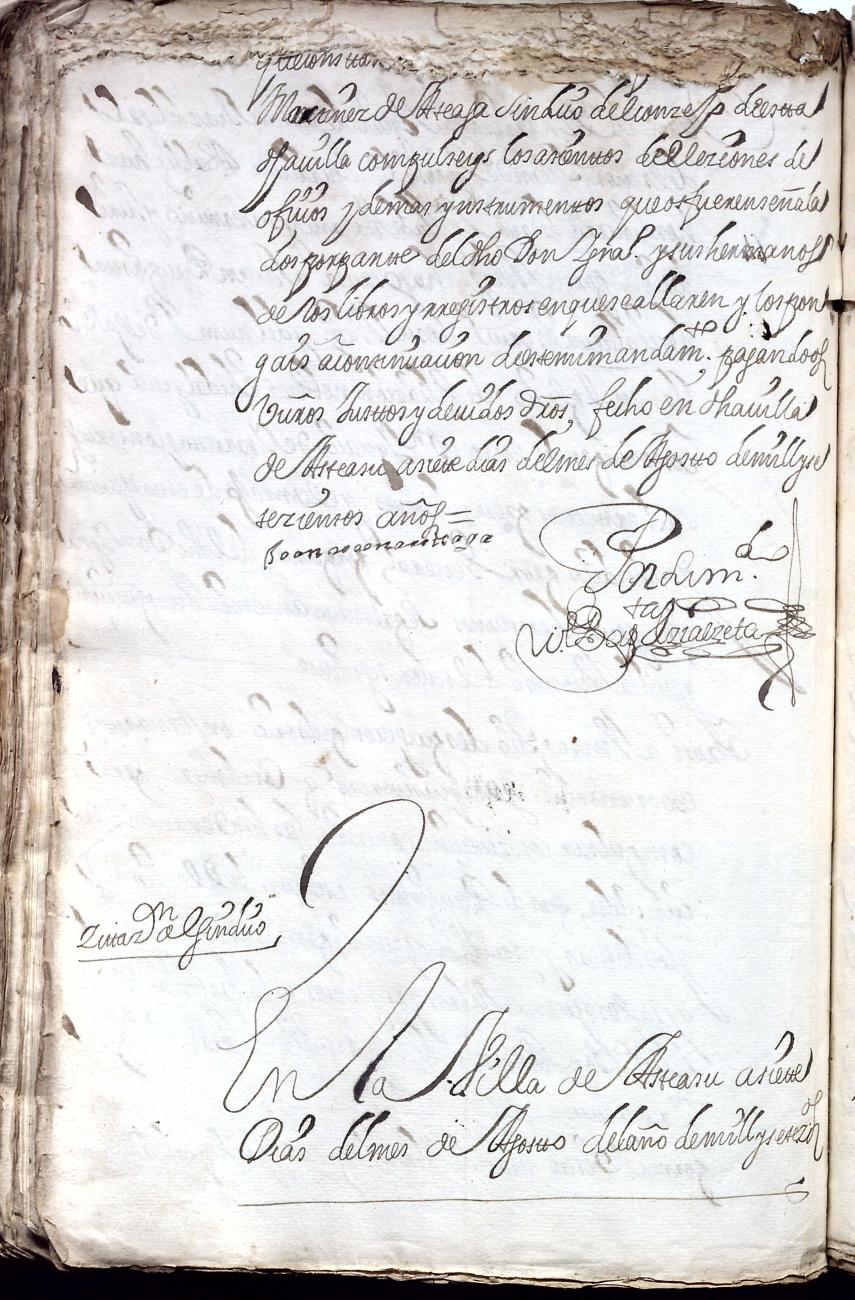 y citacion
Martinez de Ateaga Sindico del conzejo de esta
dha villa compulseys los asientos de Elecciones de
oficios y demas ynstrumentos que os fueren señala
dos por parte del dho Don Ygnal. y sus hermanos
de los libros y rregistros en que se allaren y los pon
gais a continuacion de este mi mandamto. pagandoos
vuros. Justos y devidos dros, fecho en dha villa
de Asteasu a siete dias del mes de Agosto de mill y se
tezientos años =
Por su mdo.
Bap.ta
Zitazon. a el Sindico
En la Villa de Asteasu a siete
Dias del mes de Agosto del año de mill y setezos